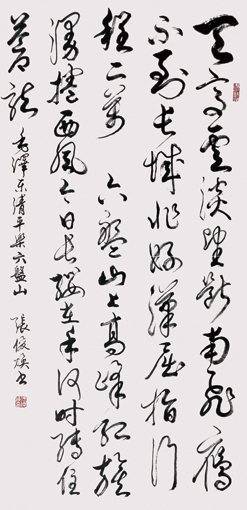 天高雲淡望斷南飛雁
不到長城非好漢屈指行
程二萬六盤山上高峰紅旗
漫捲西風今日長纓在手何時縛住
蒼龍
毛澤東清平樂六盤山
張俊煥书